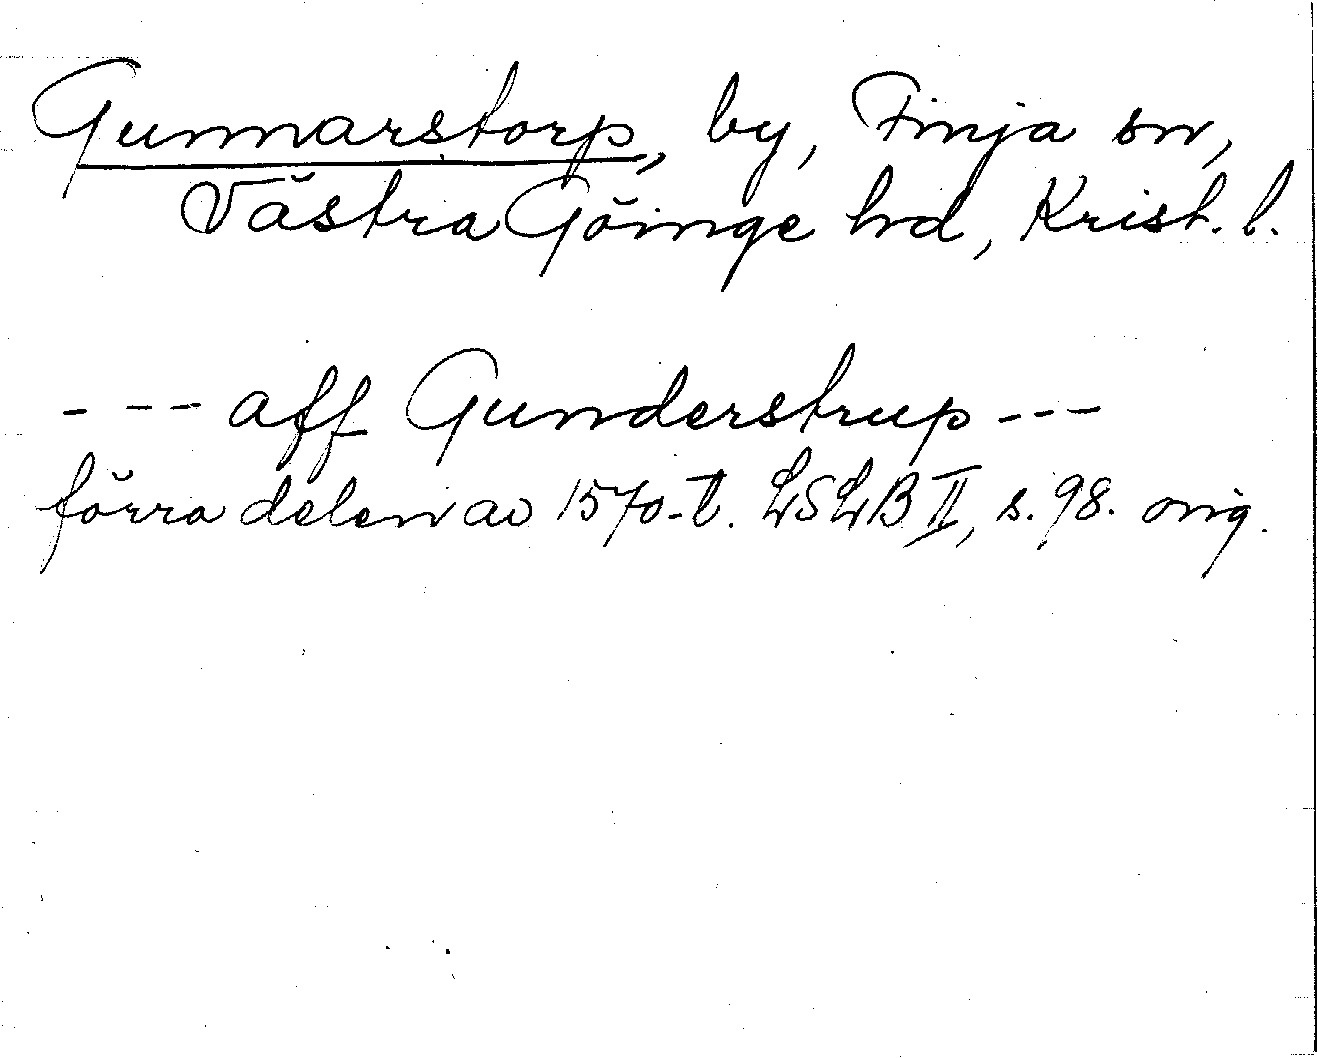 Gunnarstorp, by, Finja sn,
Västra Göinge hd, Krist. l.
- -- aff Gunderstrup ---
förra delen av 1570-t. LSLB II, s. 98. orig.